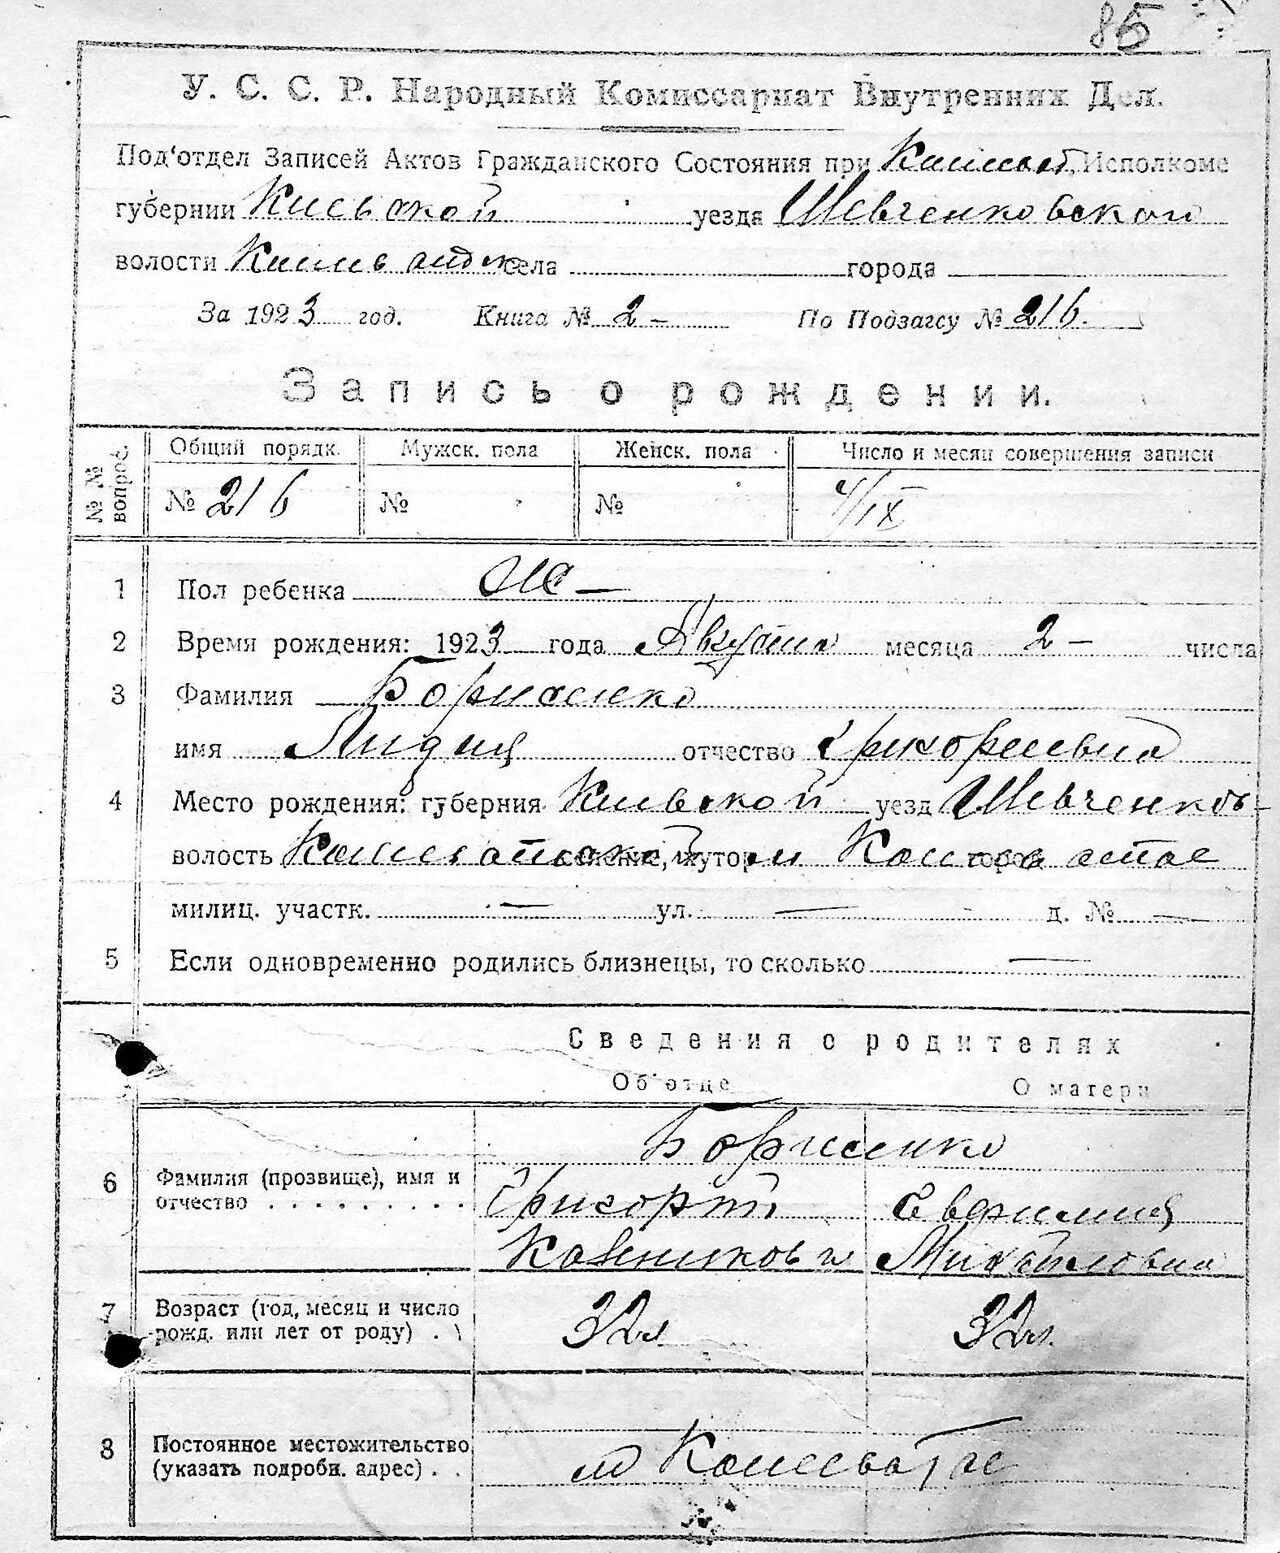 85
У. С. С. Р. Народный Комиссариат Внутренних Дел.
Под'отдел Записей Актов Гражданского Состояния при Исполкоме
губернии Киевской уезда Шевченковского
волости села города
За 1923 год. Книга № 2 - По Подзагсу № 216.
Запись о рождении.
№ № вопрос. Общий порядк. Мужск. пола Женск. пола Число и месяц совершения записи
№ 216 № № 4/IX
1 Пол ребенка —
2 Время рождения: 1923 года Августа месяца 2 — числа
3 Фамилия Борисенко
имя Лидия отчество Григорьевна
4 Место рождения: губерния Киевской уезд Шевченков-
волость селение, хутор м город
милиц. участк. — ул. — д. № —
5 Если одновременно родились близнецы, то сколько —
Сведения о родителях
Об'отце О матери
Борисенко
6 Фамилия (прозвище), имя и
отчество . . . . . . . . . Григорий
Михайловна
7 Возраст (год, месяц и число
рожд. или лет от роду) . 32 л 32 л.
8 Постоянное местожительство
(указать подробн. адрес) . . м